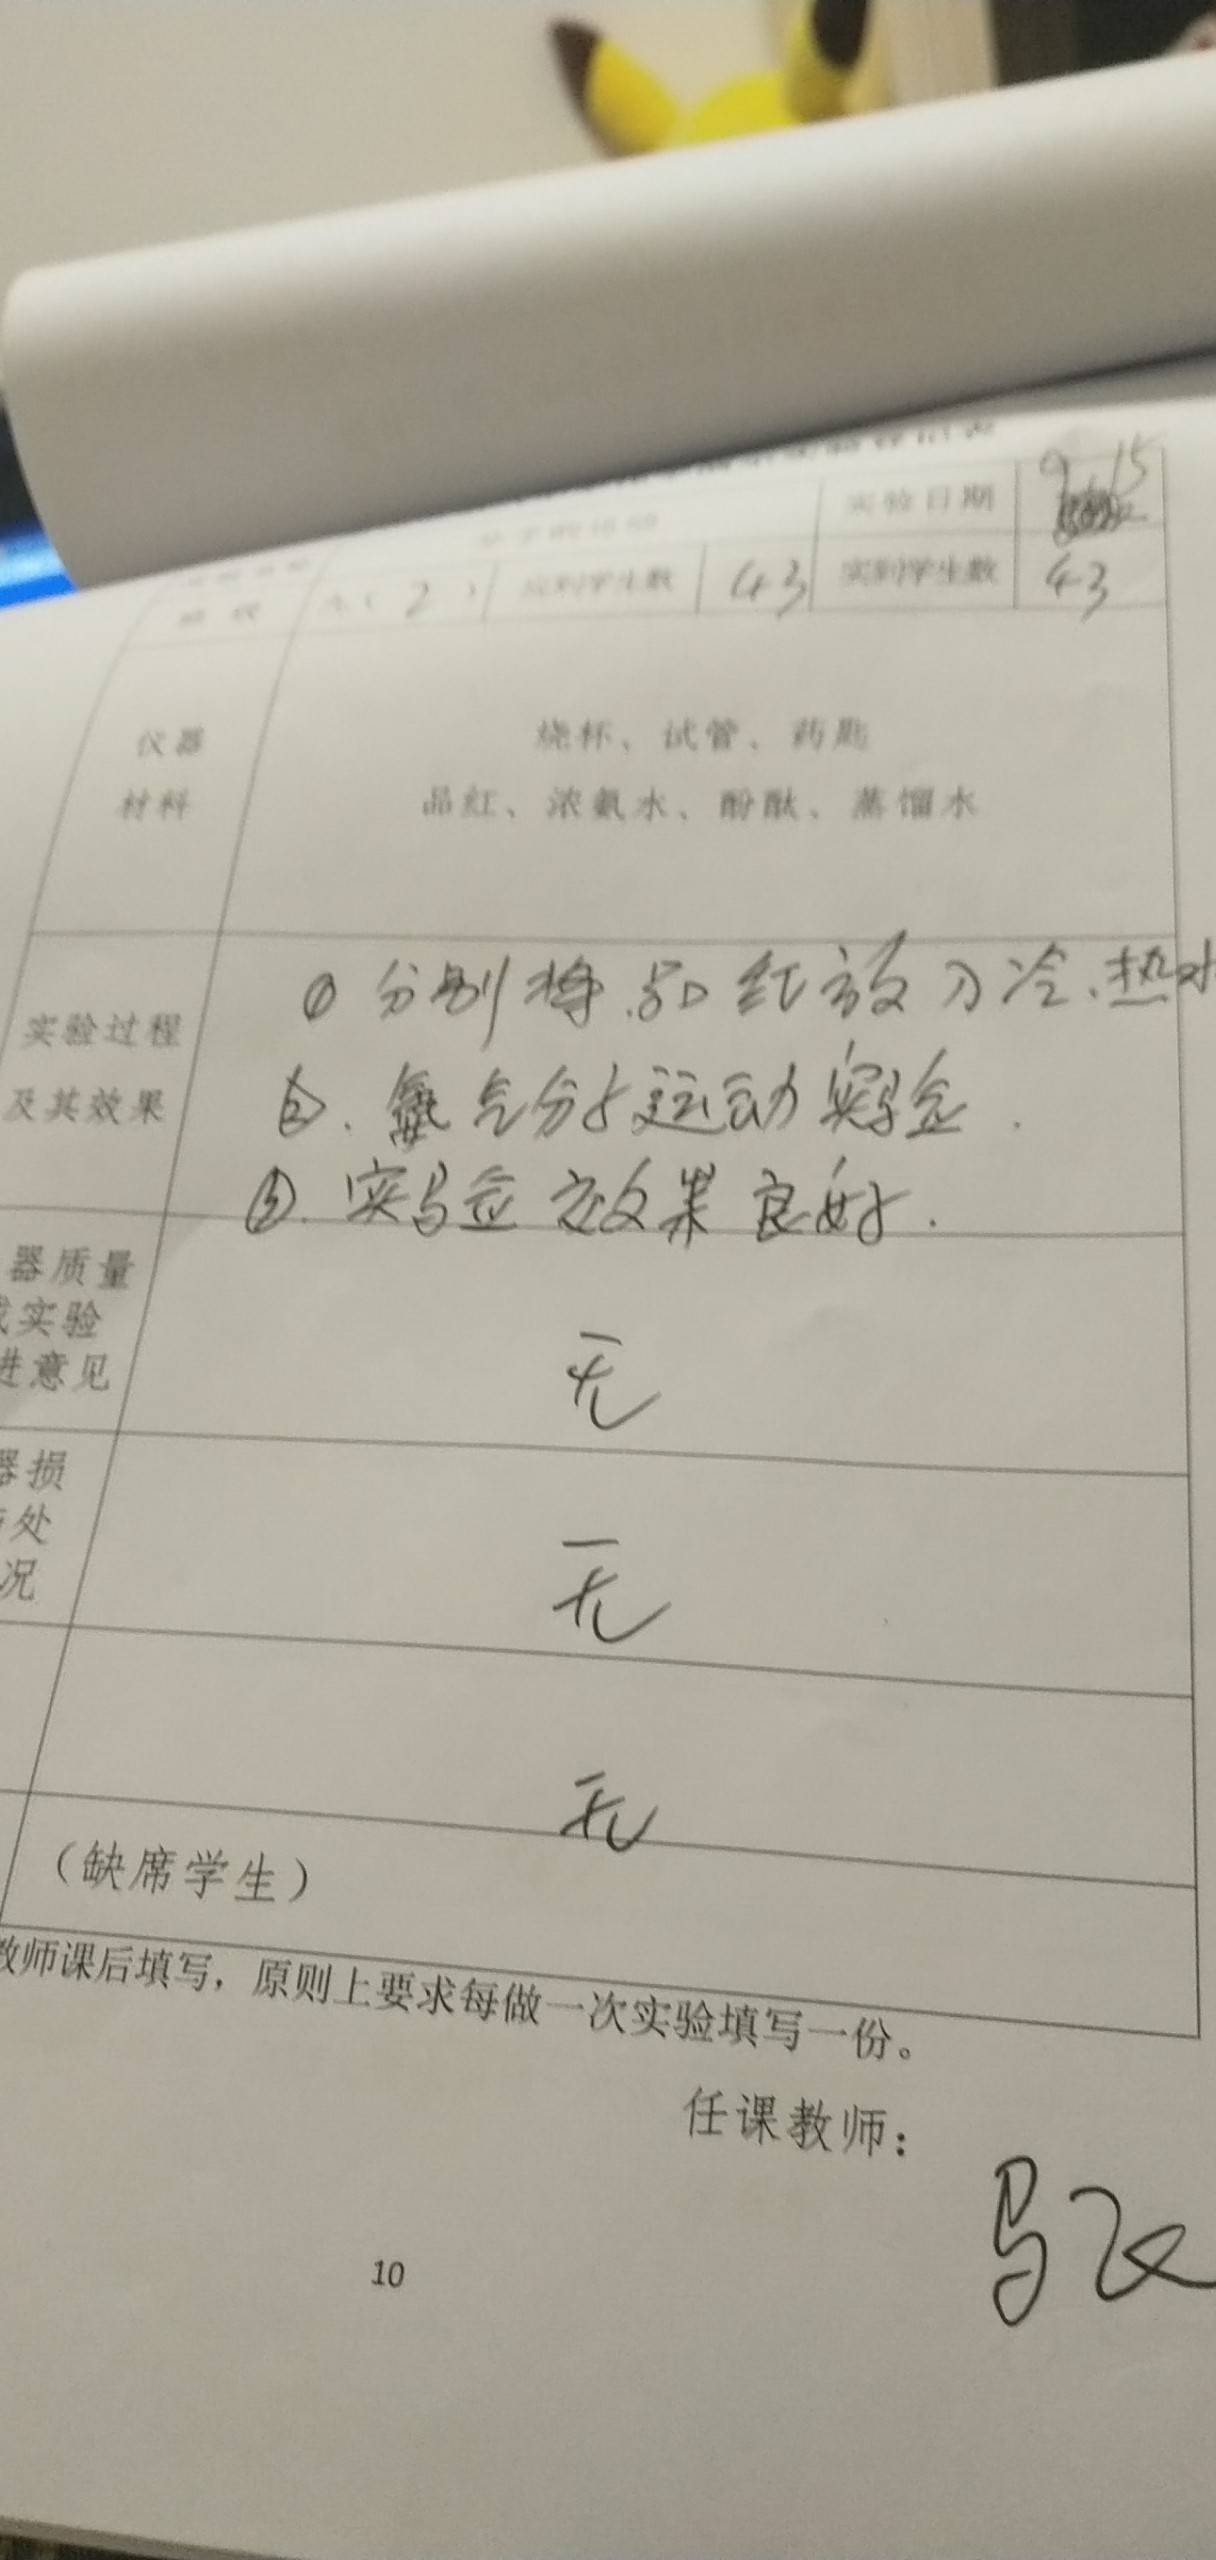 实验日期 9.15
(2) 应到学生数 43 实到学生数 43
仪器
材料
烧杯、试管、药匙
品红、浓氨水、酚酞、蒸馏水
实验过程
及其效果
① 分别将品红放入冷、热水
②. 氨气分子运动实验.
③. 实验效果良好.
器质量
实验
进意见
无
器损
处
况
无
无
(缺席学生)
教师课后填写，原则上要求每做一次实验填写一份。
任课教师：
10